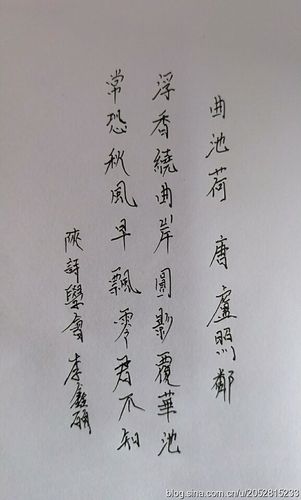 曲池荷　唐　盧照鄰
浮香繞曲岸圓影覆華池
常恐秋風早飄零君不知
陝詩學會　李
blog.sina.com.cn/u/2052815233